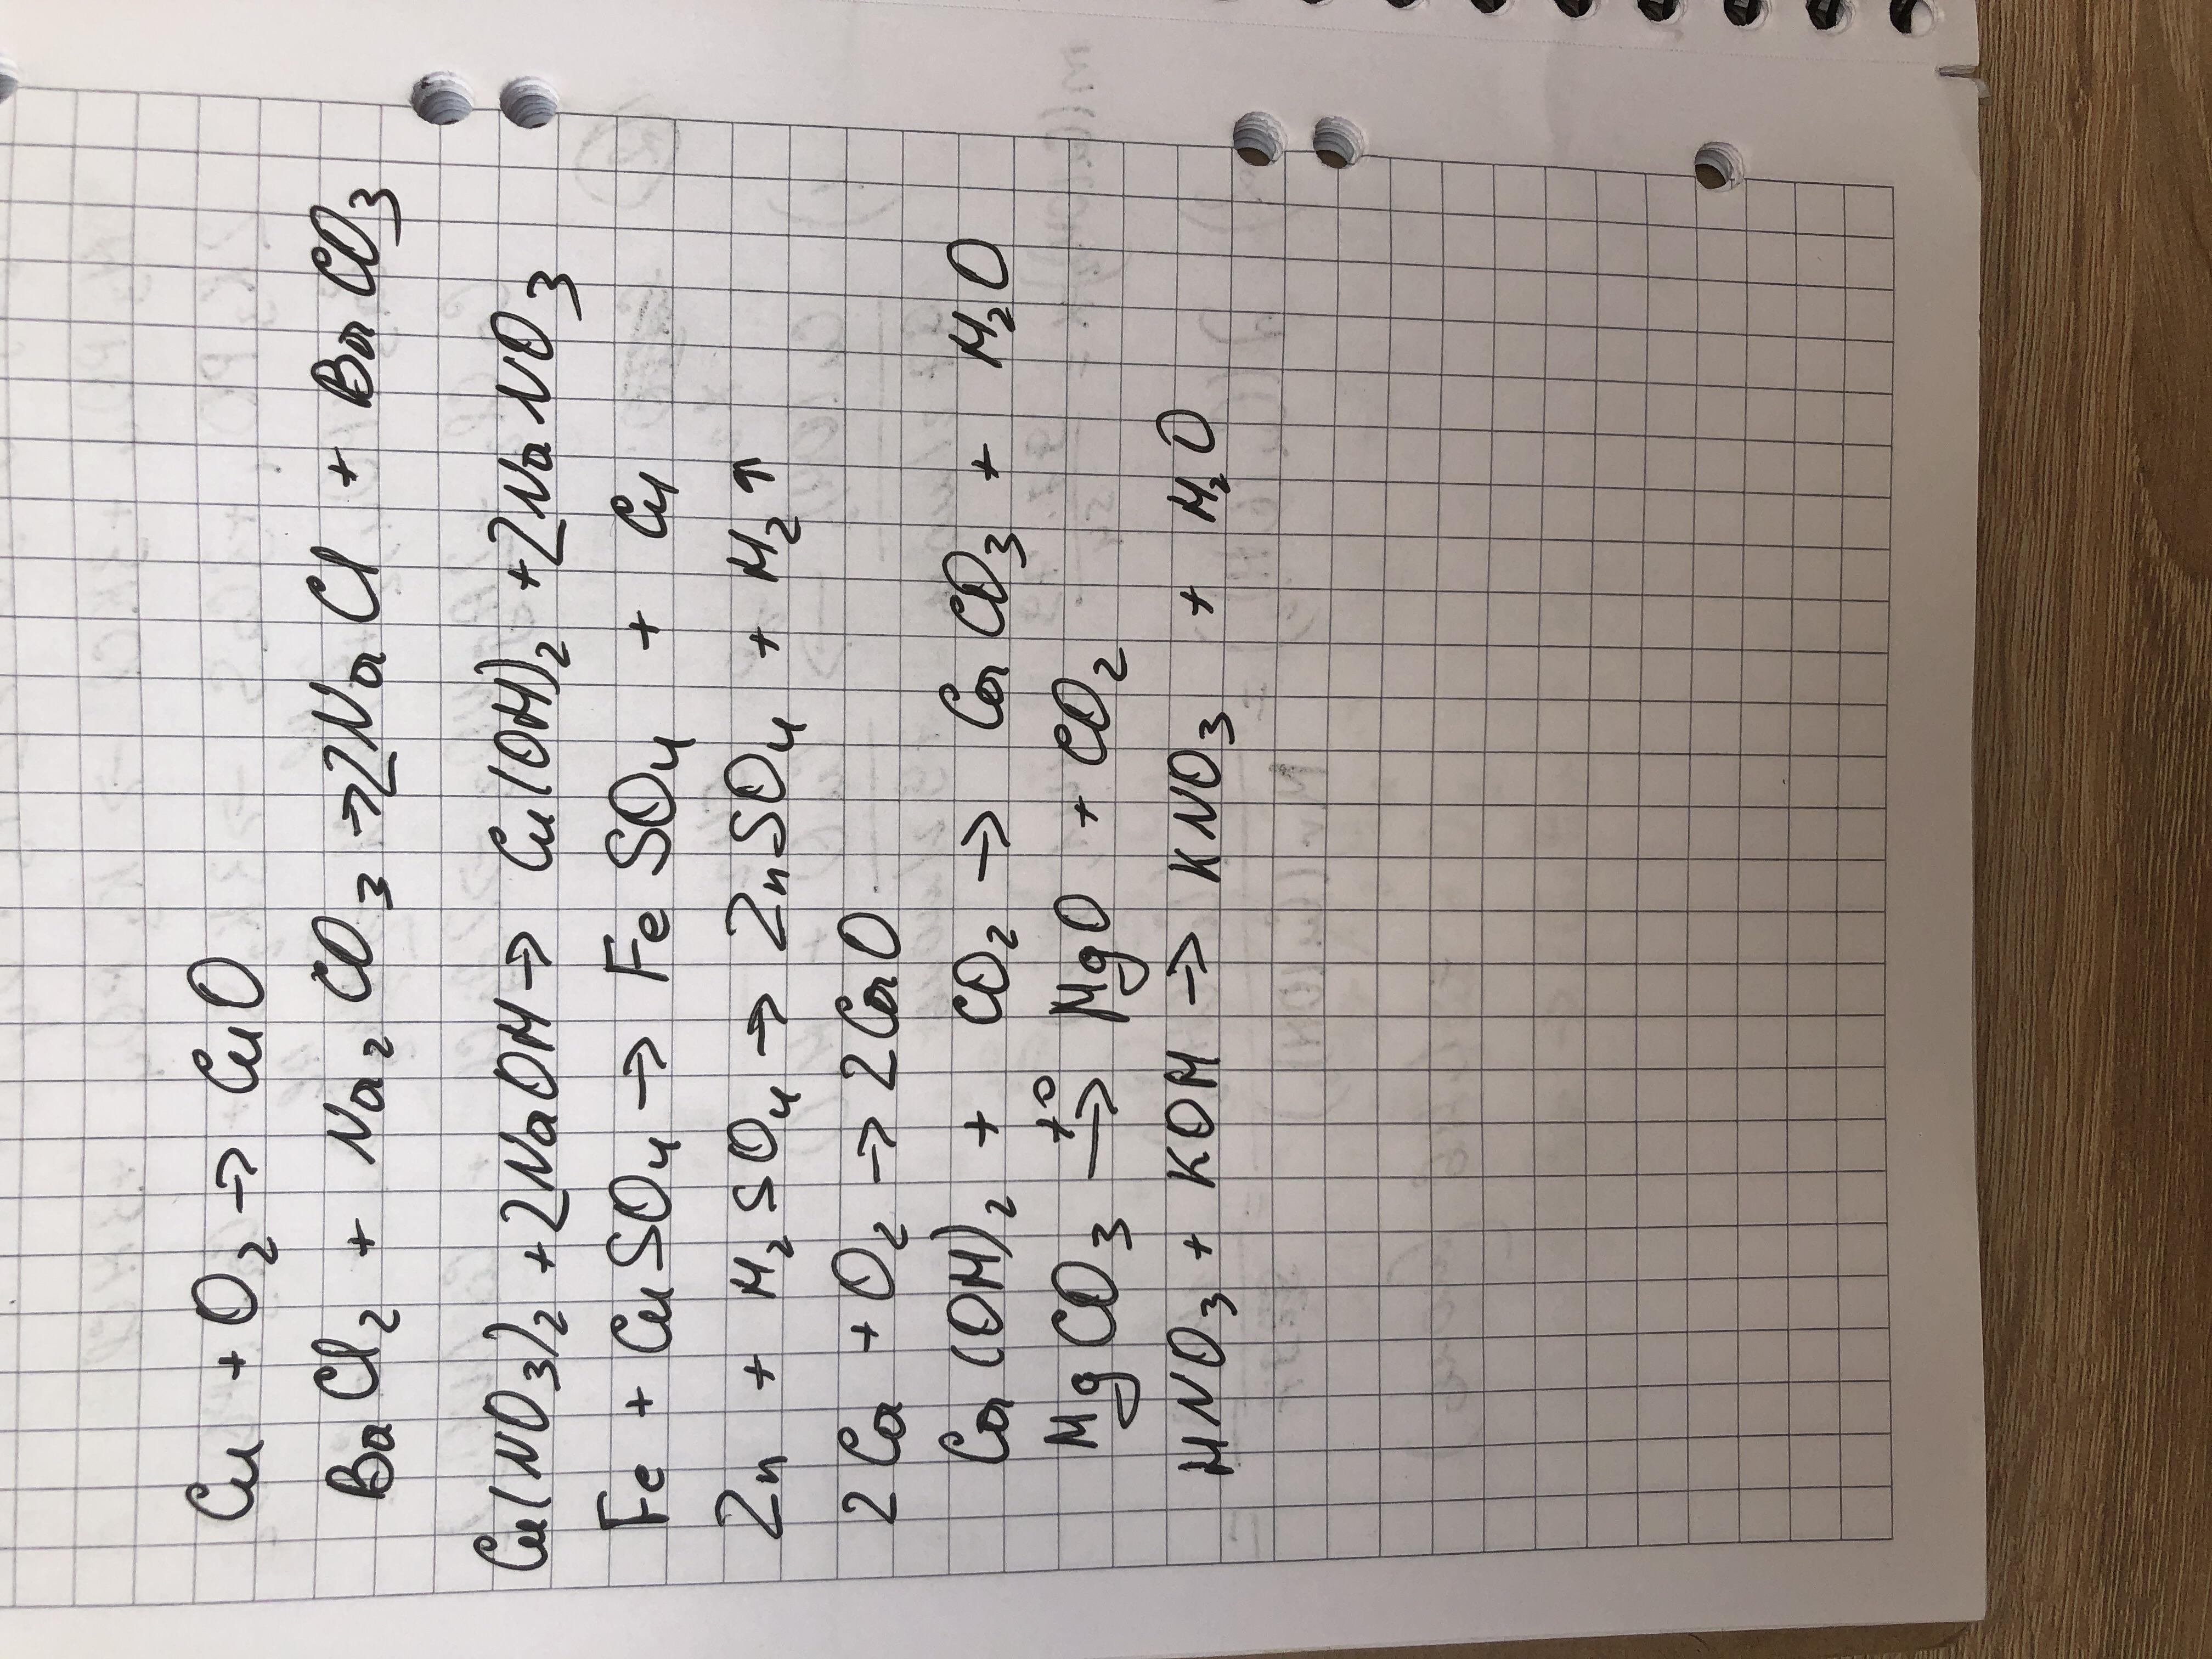 Cu + O₂ → CuO
BaCl₂ + Na₂CO₃ → 2NaCl + BaCO₃
Cu(NO₃)₂ + 2NaOH → Cu(OH)₂ + 2NaNO₃
Fe + CuSO₄ → FeSO₄ + Cu
Zn + H₂SO₄ → ZnSO₄ + H₂↑
2Ca + O₂ → 2CaO
Ca(OH)₂ + CO₂ → CaCO₃ + H₂O
MgCO₃ →t° MgO + CO₂
HNO₃ + KOH → KNO₃ + H₂O